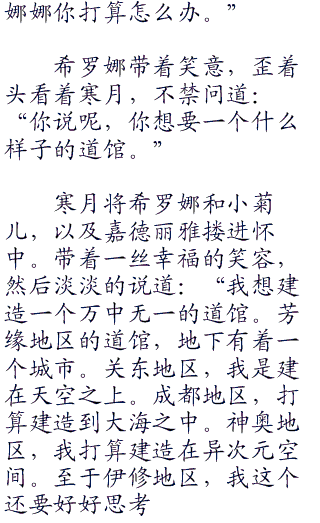 娜娜你打算怎么办。”
希罗娜带着笑意，歪着
头看着寒月，不禁问道：
“你说呢，你想要一个什么
样子的道馆。”
寒月将希罗娜和小菊
儿，以及嘉德丽雅搂进怀
中。带着一丝幸福的笑容，
然后淡淡的说道：“我想建
造一个万中无一的道馆。芳
缘地区的道馆，地下有着一
个城市。关东地区，我是建
在天空之上。成都地区，打
算建造到大海之中。神奥地
区，我打算建造在异次元空
间。至于伊修地区，我这个
还要好好思考